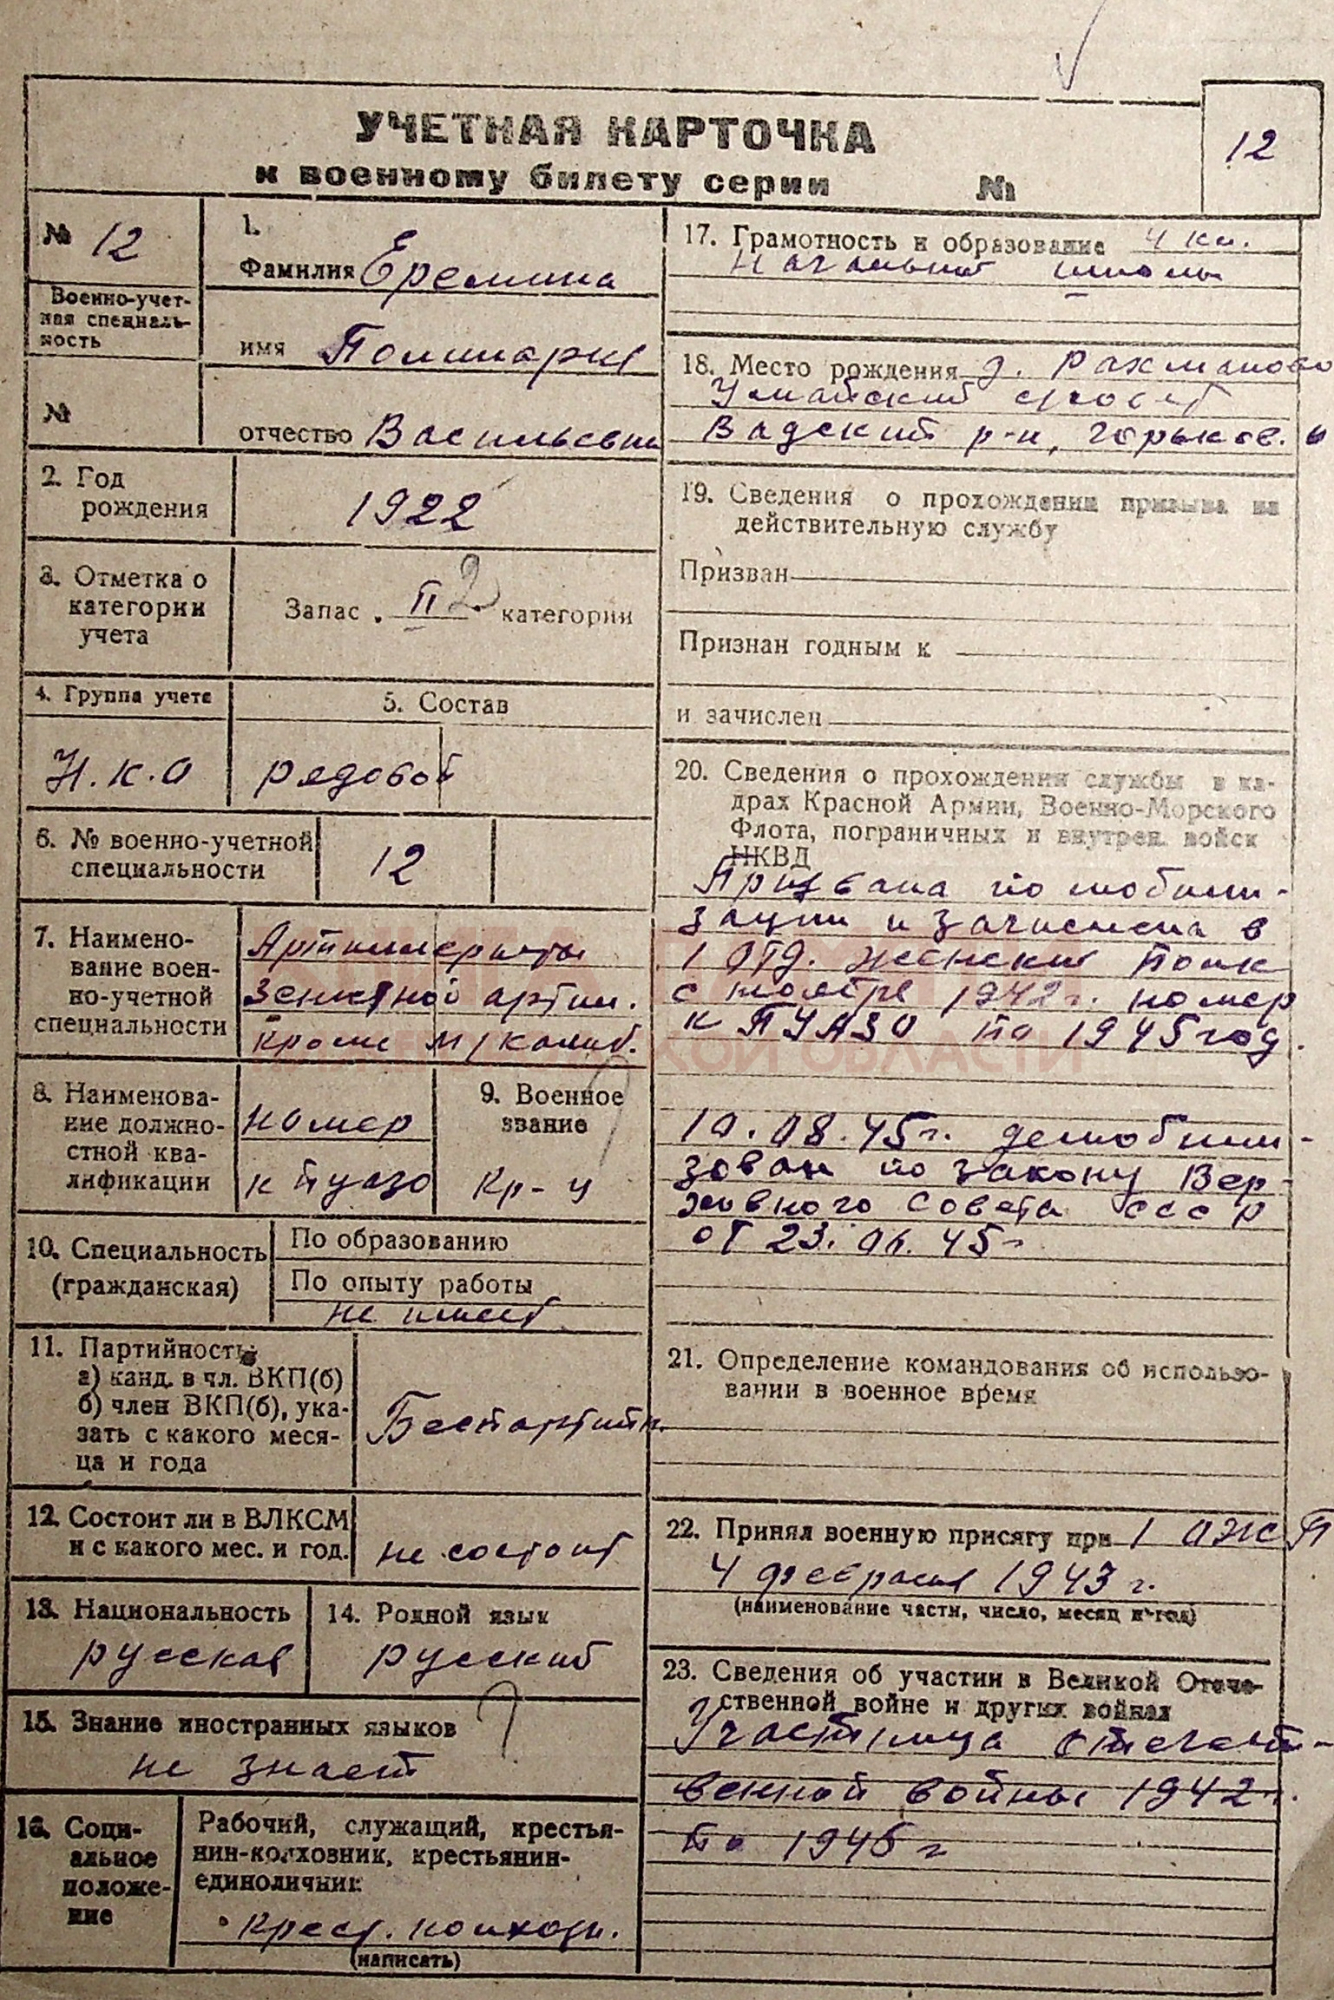 12
УЧЕТНАЯ КАРТОЧКА
к военному билету серии №
№ 12
Военно-учет-
ная специаль-
ность
№
1.
Фамилия Еремина
имя
отчество
2. Год
рождения
1922
3. Отметка о
категории
учета
Запас . II 2 категории
4. Группа учета
Н.К.О
5. Состав
рядовой
6. № военно-учетной
специальности
12
7. Наимено-
вание воен-
но-учетной
специальности
Артиллеристы
зенитной артил.
кроме м/калиб.
8. Наименова-
ние должно-
стной ква-
лификации
номер
к пуазо
9. Военное
звание
Кр-ц
10. Специальность
(гражданская)
По образованию
По опыту работы
не имеет
11. Партийность
а) канд. в чл. ВКП(б)
б) член ВКП(б), ука-
зать с какого меся-
ца и года
Беспартийн.
12. Состоит ли в ВЛКСМ
и с какого мес. и год.
не состоит
13. Национальность
русская
14. Родной язык
русский
15. Знание иностранных языков
не знает
16. Соци-
альное
положе-
ние
Рабочий, служащий, крестья-
нин-колховник, крестьянин-
единоличник
крест. колхозн.
(написать)
17. Грамотность и образование 4 кл.
начальной школы
18. Место рождения д. Рахманово
Вадский р-н, горьков. о
19. Сведения о прохождении призыва на
действительную службу
Призван
Признан годным к
и зачислен
20. Сведения о прохождении службы в ка-
драх Красной Армии, Военно-Морского
Флота, пограничных и внутрен. войск
НКВД
Призвана по мобили-
зации и зачислена в
1 отд. женский полк
с ноября 1942 г. номер
к ПУАЗО по 1945 год.
10.08.45 г. демобили-
зован по закону Вер-
ховного Совета СССР
от 23.06.45 г
21. Определение командования об использо-
вании в военное время
22. Принял военную присягу при 1 ОЖСП
4 февраля 1943 г.
(наименование части, число, месяц и год)
23. Сведения об участии в Великой Отече-
ственной войне и других войнах
Участница отечест-
венной войны 1942 г.
по 1945 г